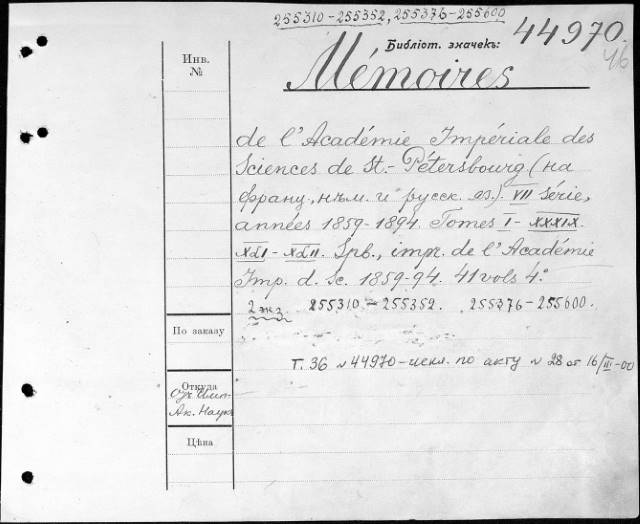 255310-255352, 255376-255600
Библіот. значекъ: 44970.
46
Инв. №
Mémoires
de l'Académie Impériale des
Sciences de St.-Pétersbourg (на
франц., нѣм. и русск. яз.). VII Série,
années 1859-1894. Tomes I-XXXIX.
XLI-XLII. Spb., impr. de l'Académie
Imp. d. Sc. 1859-94. 41 vols 4°.
2 экз. 255310-255352. 255376-255600.
По заказу
Т. 36 № 44970-искл. по акту № 28 от 16/III-00
Откуда
Ак. Наукъ
Цѣна